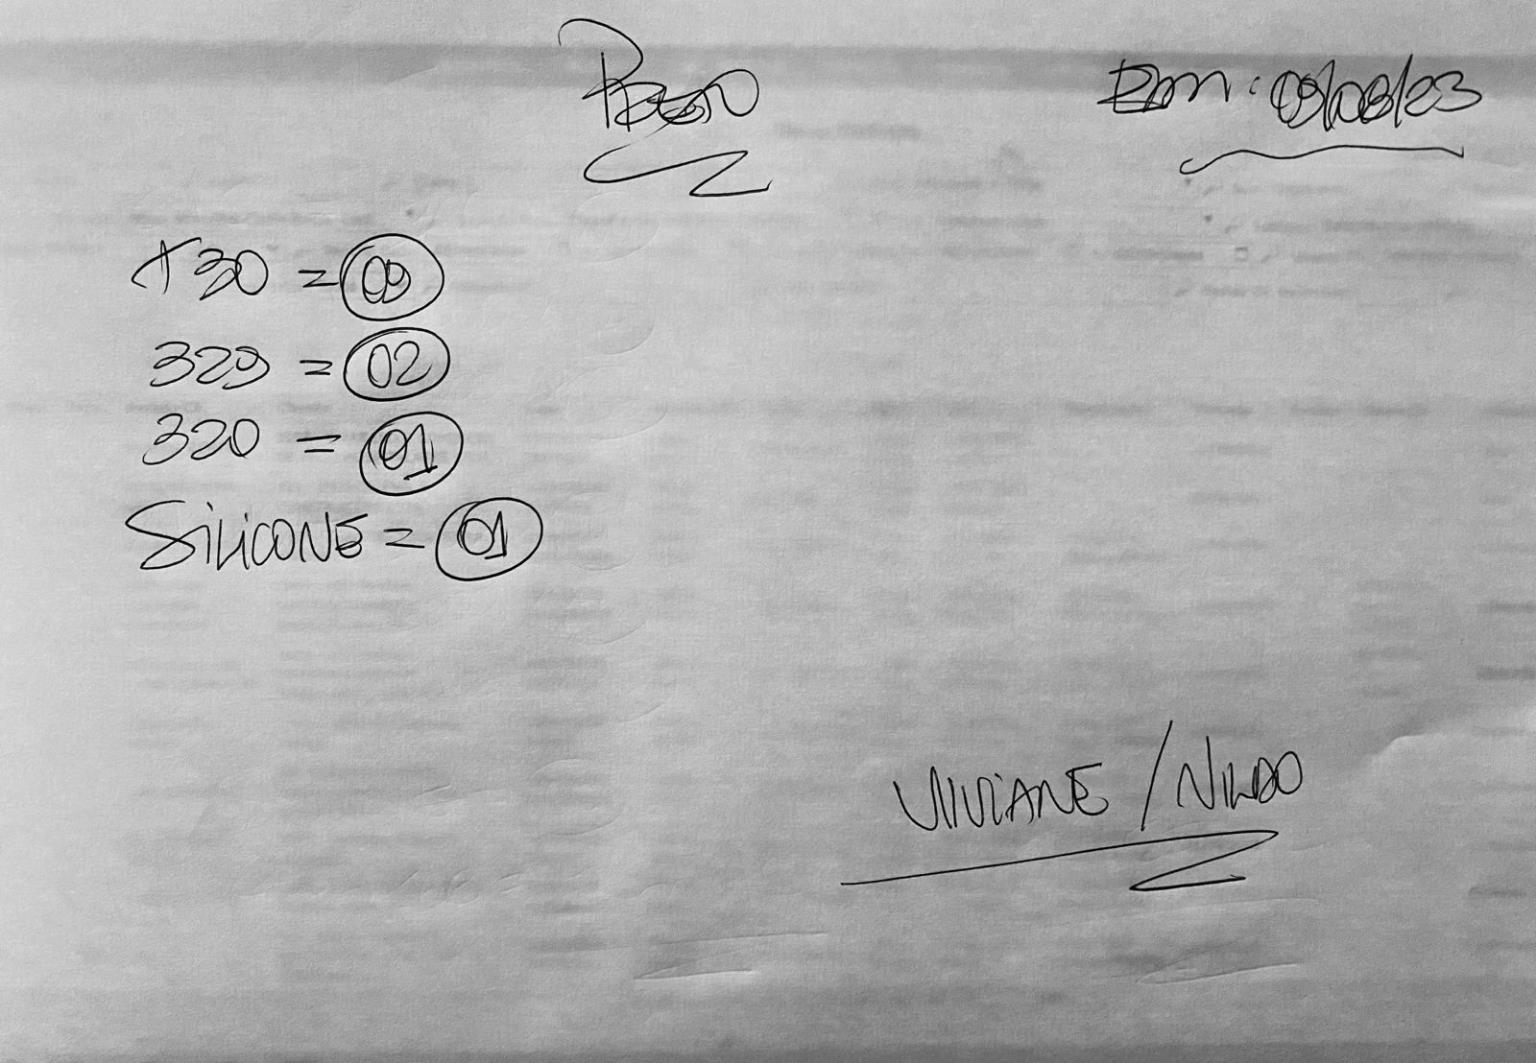 Em: 09/08/23
T30 = 09
329 = 02
320 = 01
SILICONE = 01
VIVIANE / NILDO